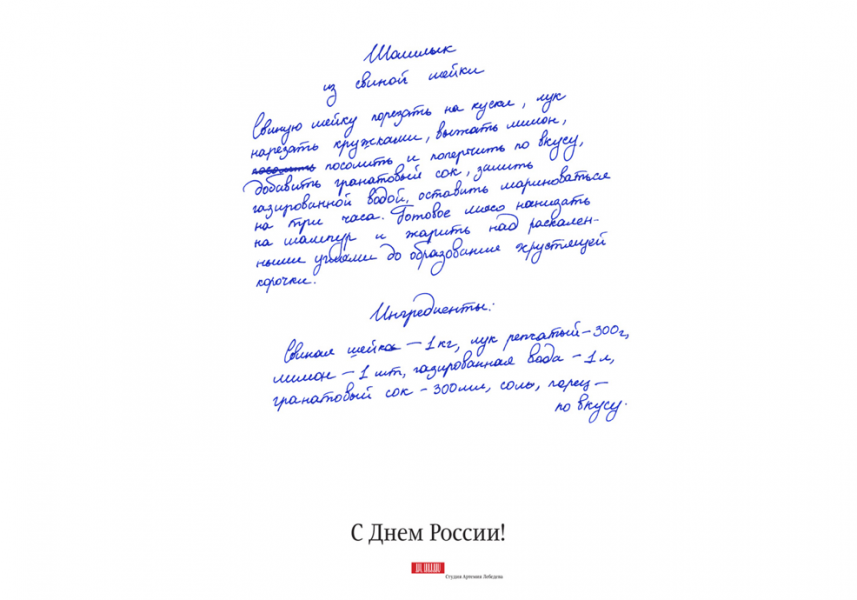 Шашлык
из свиной шейки
Свиную шейку порезать на куски, лук
нарезать кружками, выжать лимон,
посолить посолить и поперчить по вкусу,
добавить гранатовый сок, залить
газированной водой, оставить мариноваться
на три часа. Готовое мясо нанизать
на шампур и жарить над раскален-
ными углями до образования хрустящей
корочки.
Ингредиенты:
Свиная шейка – 1 кг, лук репчатый – 300 г,
лимон – 1 шт, газированная вода – 1 л,
гранатовый сок – 300 мл, соль, перец –
по вкусу.
С Днем России!
Студия Артемия Лебедева